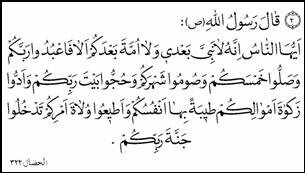 (٢) قَالَ رَسُولُ اللهِ (ص):
اَيُّهَا النَّاسُ اِنَّهُ لَا نَبِىَّ بَعْدى وَلا اُمَّةَ بَعْدَكُمْ اَلا فَاعْبُدُوا رَبَّكُمْ
وَصَلُّوا خَمْسَكُمْ وَصُومُوا شَهْرَكُمْ وَحُجُّوا بَيْتَ رَبِّكُمْ وَاَدُّوا
زَكوةَ اَمْوالِكُمْ طَيِّبَةً بِها اَنْفُسُكُمْ وَاَطيعُوا وُلاةَ اَمْرِكُمْ تَدْخُلُوا
جَنَّةَ رَبِّكُمْ .
الخصال: ٣٢٢